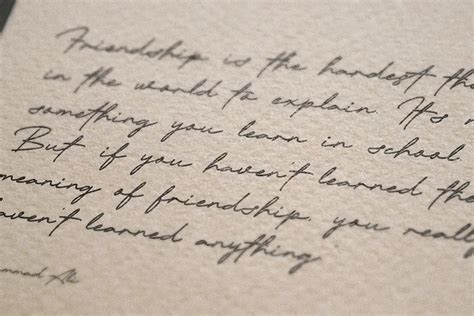 Friendship is the hardest
in the world to explain. It's
something you learn in school.
But if you haven't learned the
meaning of friendship, you really
haven't learned anything
Ali